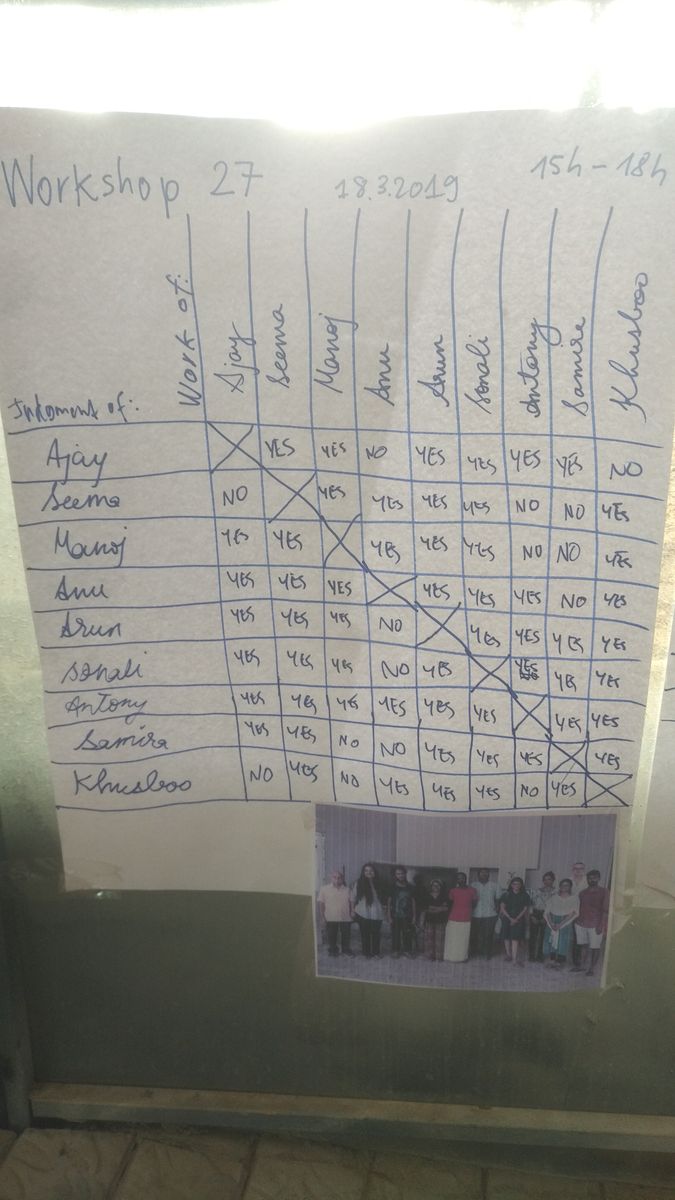 Workshop 27 18.3.2019 15h - 18h
Work of: Ajay Seema Manoj Anu Arun Sonali Antony Samira Khusboo
Judgment of:
Ajay YES YES NO YES YES YES YES NO
Seema NO YES YES YES YES NO NO YES
Manoj YES YES YES YES YES NO NO YES
Anu YES YES YES YES YES YES NO YES
Arun YES YES YES NO YES YES YES YES
Sonali YES YES YES NO YES YES YES YES
Antony YES YES YES YES YES YES YES YES
Samira YES YES NO NO YES YES YES YES
Khusboo NO YES NO YES YES YES NO YES